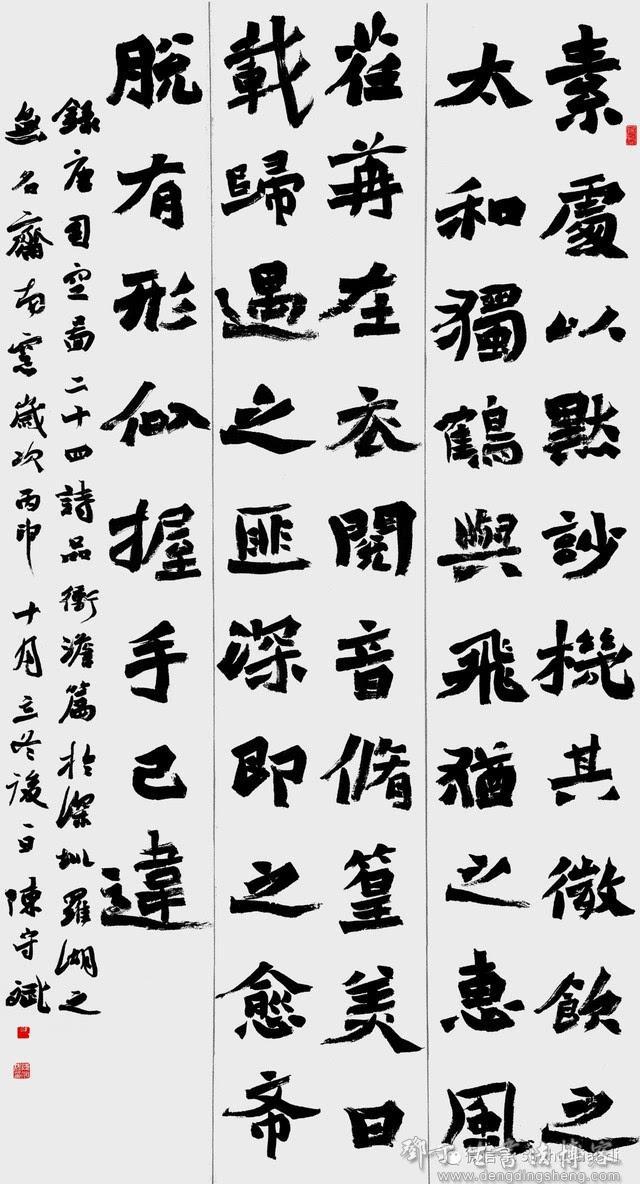 素處以默訬機其微飲之
太和獨鶴與飛猶之惠風
荏苒在衣閱音脩篁美曰
載歸遇之匪深即之愈希
脫有形似握手已違
錄唐司空圖二十四詩品衝澹篇於深圳羅湖之
無名齋南窗歲次丙申十月立冬後一日陳守斌
www.dengdingsheng.com